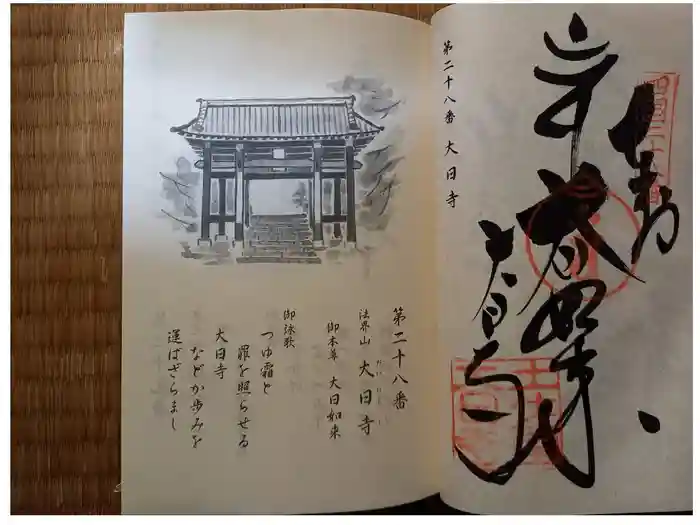 第二十八番 大日寺
奉納
大日如来
大日寺
四国二十八番
第二十八番
法界山 大日寺
だいにちじ
御本尊 大日如来
御詠歌
つゆ霜と
罪を照らせる
大日寺
などか歩みを
運ばざらまし